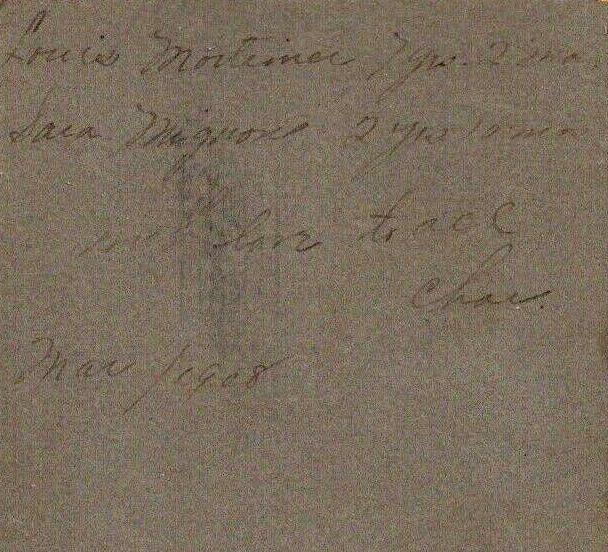 Louis Mortimer 7 yrs. 2 mo.
Sara Mignon 2 yrs 10 mo
love to all
Chas.
Mar 1908